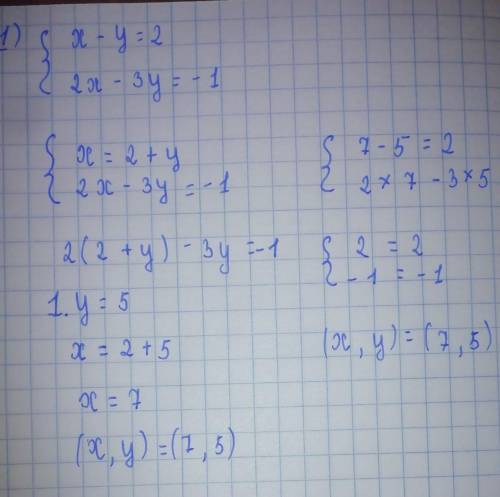 1) { x - y = 2
2x - 3y = - 1
{ x = 2 + y
2x - 3y = - 1
2(2 + y) - 3y = -1
1. y = 5
x = 2 + 5
x = 7
(x, y) = (7, 5)
{ 7 - 5 = 2
2 × 7 - 3 × 5
{ 2 = 2
- 1 = - 1
(x, y) = (7, 5)